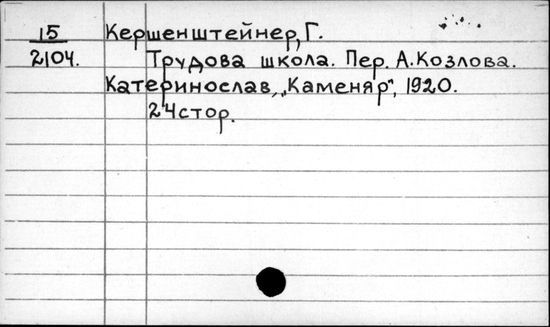 15 Кершенштейнер, Г.
2104. Трудова школа. Пер. А.Козлова.
Катеринослав, „Каменяр", 1920.
24стор.